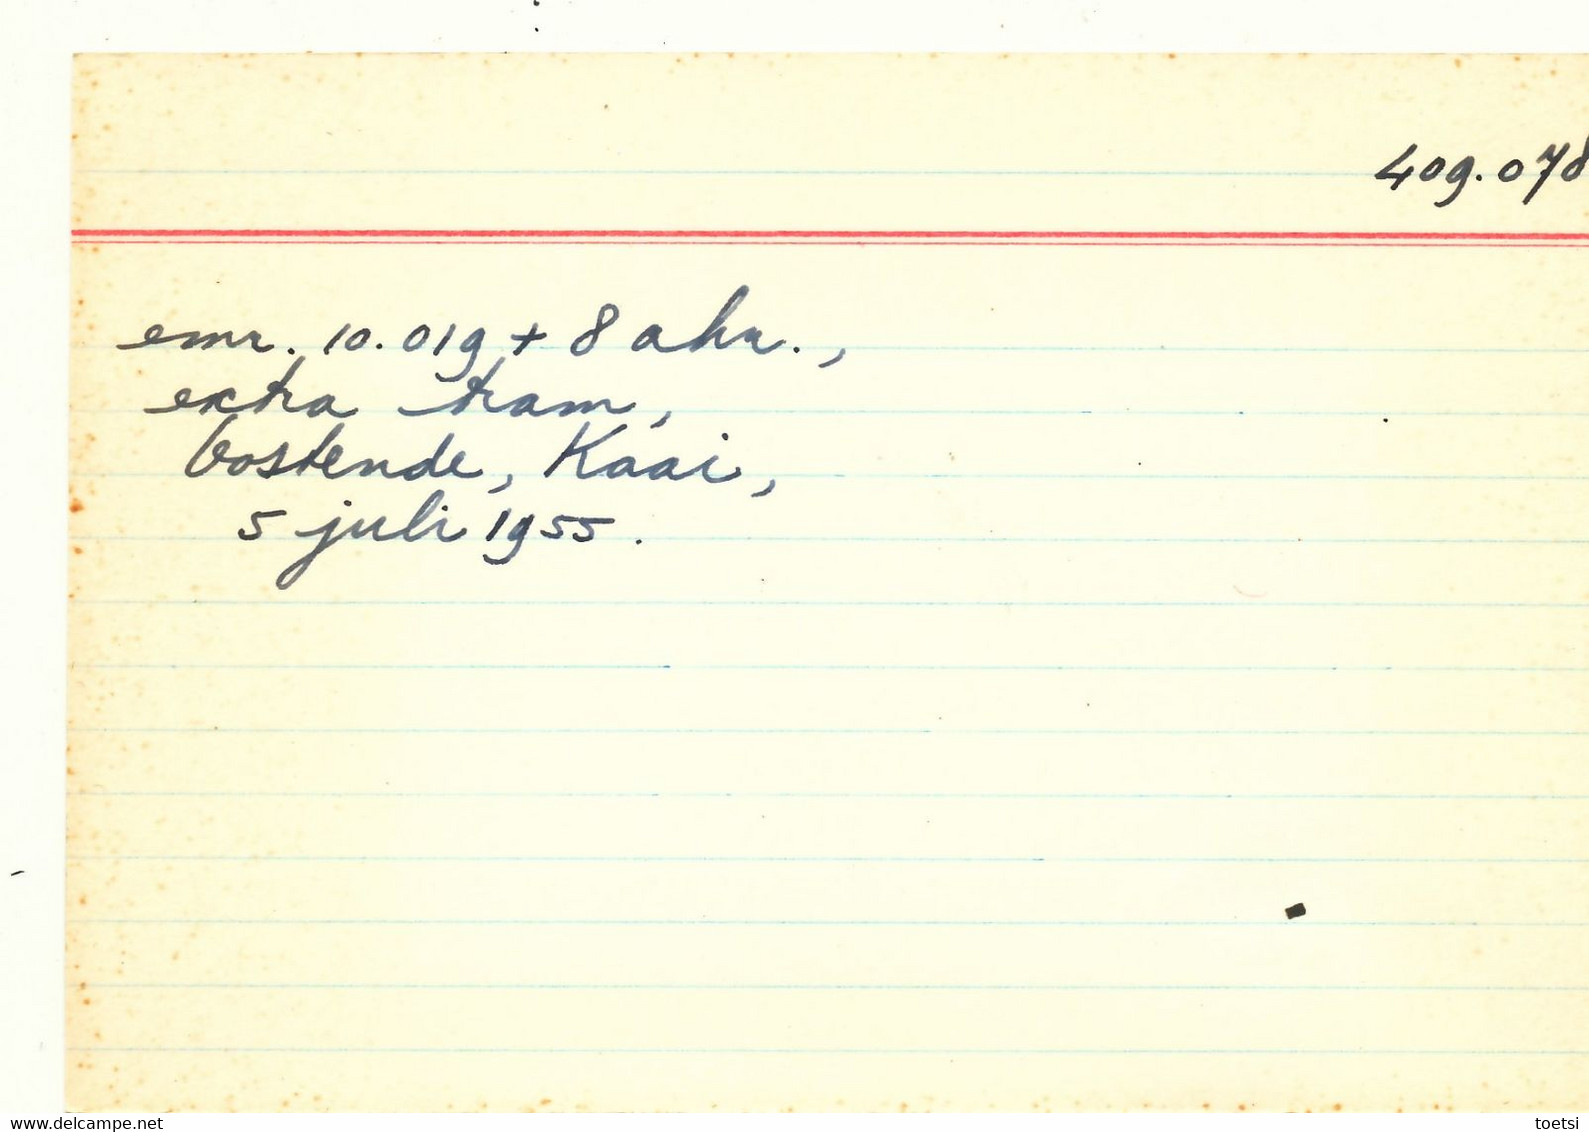 409.078
emr. 10.019 + 8 ahr.,
extra tram,
Oostende, Kaai,
5 juli 1955.
www.delcampe.net
toetsi